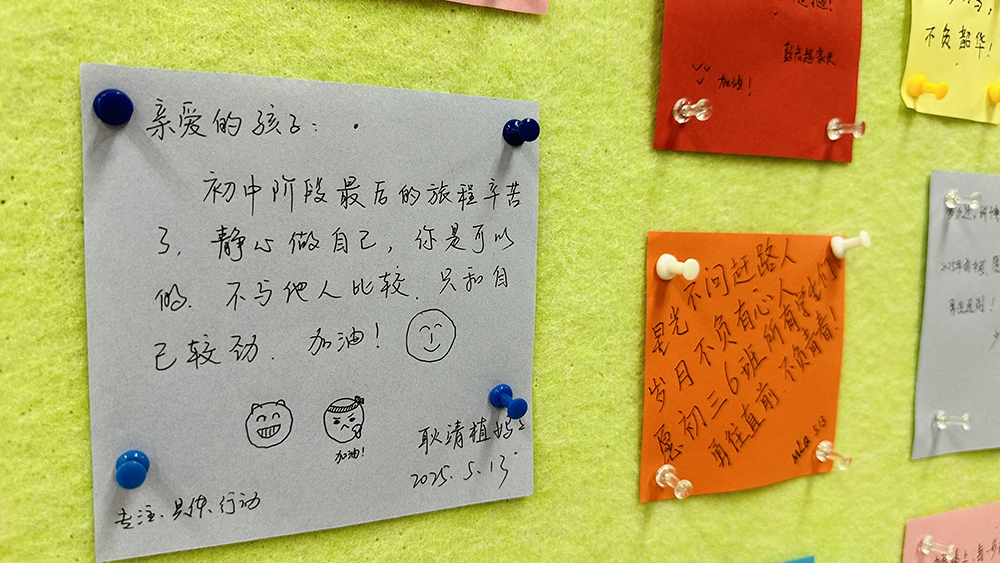 亲爱的孩子:
初中阶段最后的旅程辛苦
了,静心做自己,你是可以
的.不与他人比较.只和自
己较劲.加油!
加油!
耿清植妈妈
2025.5.13
专注、具体、行动
加油!
星光不问赶路人
岁月不负有心人
愿初三6班所有学生们
勇往直前 不负青春!
5.13
不负韶华!